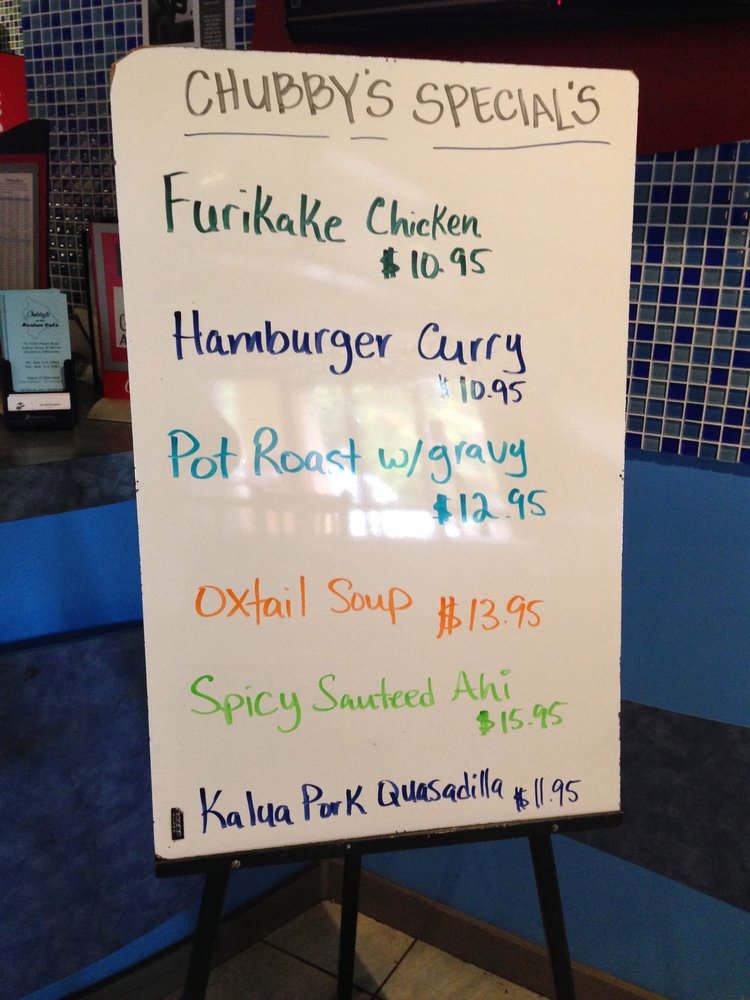 CHUBBY'S SPECIAL'S
Furikake Chicken
$10.95
Hamburger Curry
$10.95
Pot Roast w/gravy
$12.95
Oxtail Soup $13.95
Spicy Sauteed Ahi
$15.95
Kalua Pork Quasadilla $11.95
Chubby's
Avalon Café